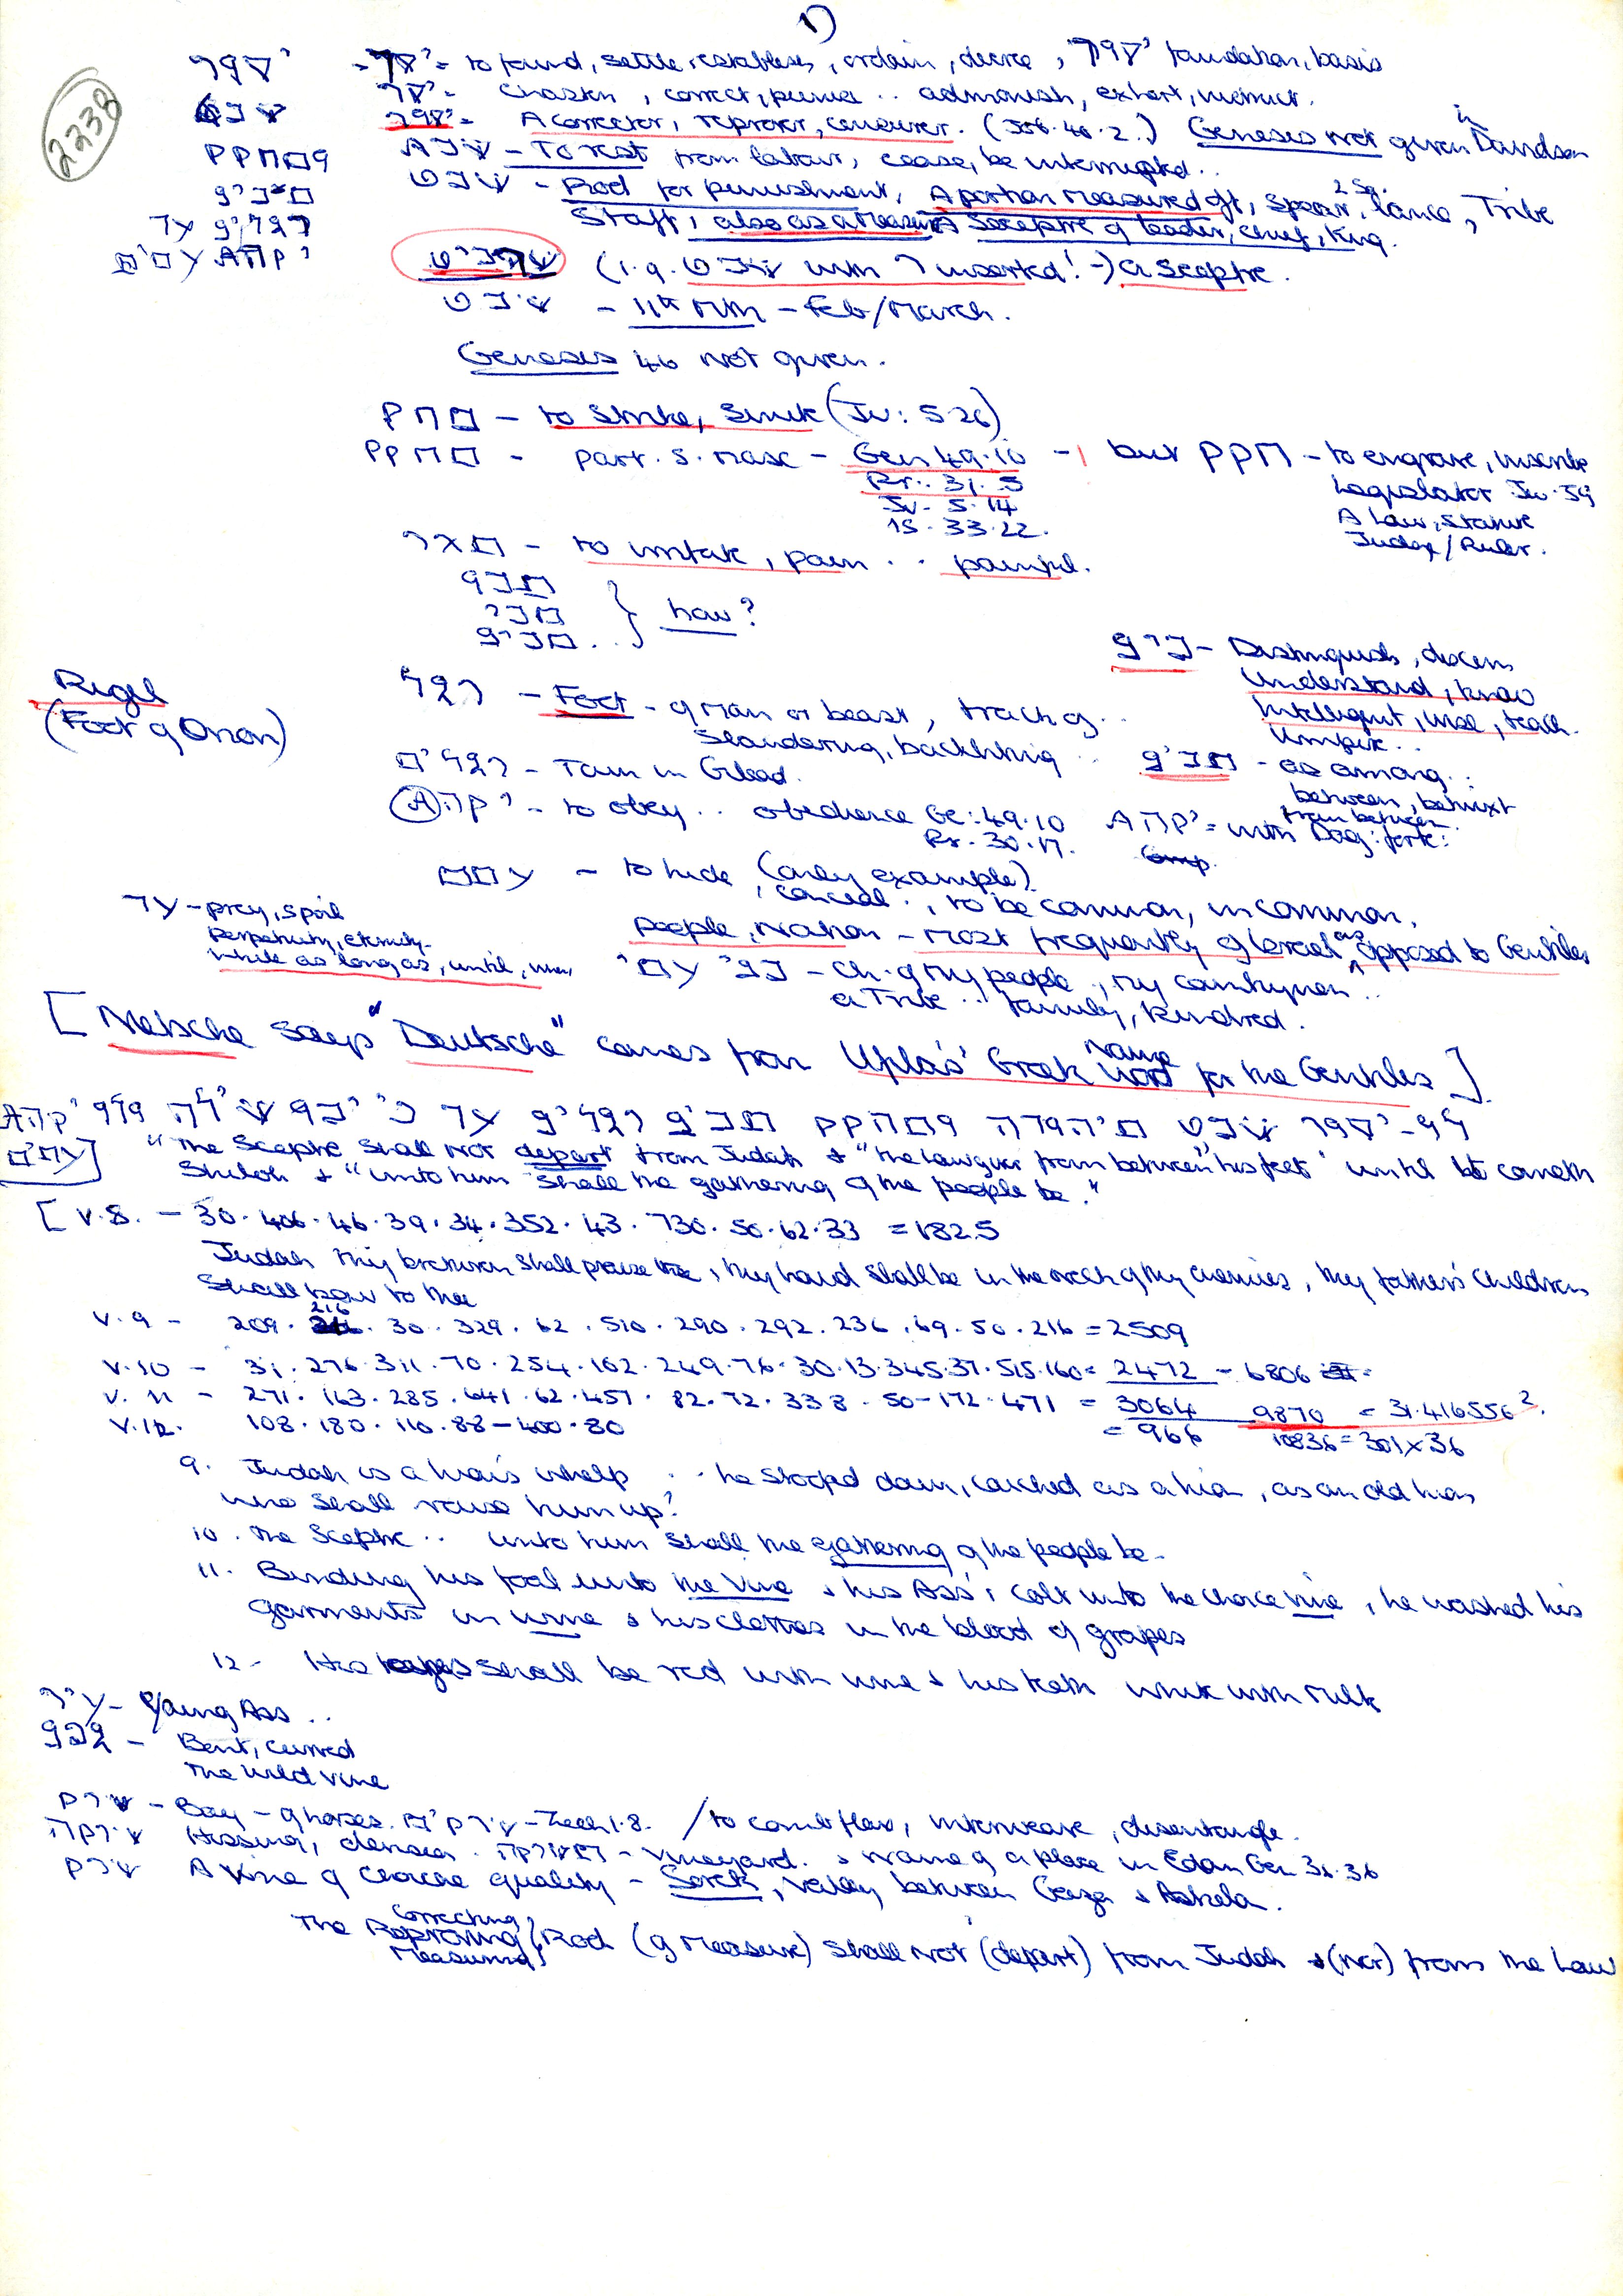 1)
2238
יסוד - יסד = to found, settle, establish, ordain, decree, יסוד foundation, basis
יסר - Chasten, correct, punish .. admonish, exhort, instruct.
יסור = A corrector, reprover, censurer. (Job. 40.2.) Genesis not given in Davidson
שבת - To rest from labour, cease, be interrupted..
שבט - Rod for punishment, A portion measured off, spear, lance, Tribe
Staff, also as a measure A Sceptre of leader, chief, King.
שרביט (i.q. שבט with ר inserted! -) a sceptre.
שבט - 11th Mth - Feb/March.
Genesis 46 not given.
מחק - to Strike, Smite (Ju: 5 26)
מחקק - part. s. masc - Gen 49.10 - but חקק - to engrave, inscribe
Pr: 31. 5
Ju. 5. 14
IS. 33.22.
Legislator
A Law, Statute
Judge/Ruler.
מאר - to irritate, pain .. painful.
מבו
מבי
מבין ..
} how?
בין - Distinguish, discern
Understand, know
Intelligent, wise, teach.
Umpire..
Rigel
(Foot of Orion)
רגל - Foot - of man or beast, track of..
Slandering, backbiting ..
מבין - as among..
between, betwixt
from between
רגלים - Town in Gilead.
יקהת - to obey .. obedience Ge: 49.10
Pr. 30.17.
יקהת = with Dag: forte:
עמם - to hide (only example)
, conceal .., to be common, in common,
עד - prey, spoil
Perpetuity, eternity
while as long as, until, when
People, Nation - most frequently of Israel as opposed to Gentiles
בני עמי - Ch. of my people .., my countrymen ..
a Tribe .. family, kindred.
[ Nietsche says "Deutsche" comes from Ufila's' Greek Name for the Gentiles ]
לא-יסור שבט מיהודה ומחקק מבין רגליו עד כי יבא שילה ולו יקהת
עמים]
"The Sceptre shall not depart from Judah & "the lawgiver from between" his feet" until he cometh
Shiloh & "unto him shall the gathering of the people be."
[ V.8. - 30. 406. 46. 39. 34. 352. 43. 730. 50. 62. 33 = 1825
Judah thy brethren shall praise thee, thy hand shall be in the neck of thy enemies, thy father's children
shall bow to thee
V.9 - 209. 216. 30. 329. 62. 510. 290. 292. 236. 69. 50. 216 = 2509
V.10 - 31. 276. 311. 70. 254. 162. 249. 76. 30. 13. 345. 37. 515. 160 = 2472 - 6806
V. 11 - 271. 163. 285. 641. 62. 457. 82. 72. 338. 50 - 172. 471 = 3064 9870 = 31.416556².
V.12. 108. 180. 110. 88 - 400. 80 = 966 10836 = 301 x 36
9. Judah is a lion's whelp .. he stooped down, couched as a lion, as an old lion
who shall rouse him up?
10. The Sceptre .. unto him shall the gathering of the people be.
11. Binding his foal unto the Vine & his Ass's Colt unto the choice Vine, he washed his
garments in wine & his clothes in the blood of grapes
12- His eyes shall be red with wine & his teeth white with milk
עיר - Young Ass ..
גפן - Bent, curved
The wild vine
שרק - Bay - of horses. שרקים - Zech 1.8. / to comb flax, interweave, disentangle.
שרקה Hissing, derision. משרקה - Vineyard. & Name of a place in Edom Gen 36.36
שרק A Vine of Choice quality - Sorek, valley between Gaza & Askelon.
Correcting
The Reproving Rod (of Measure) shall not (depart) from Judah & (nor) from the Law
Measuring